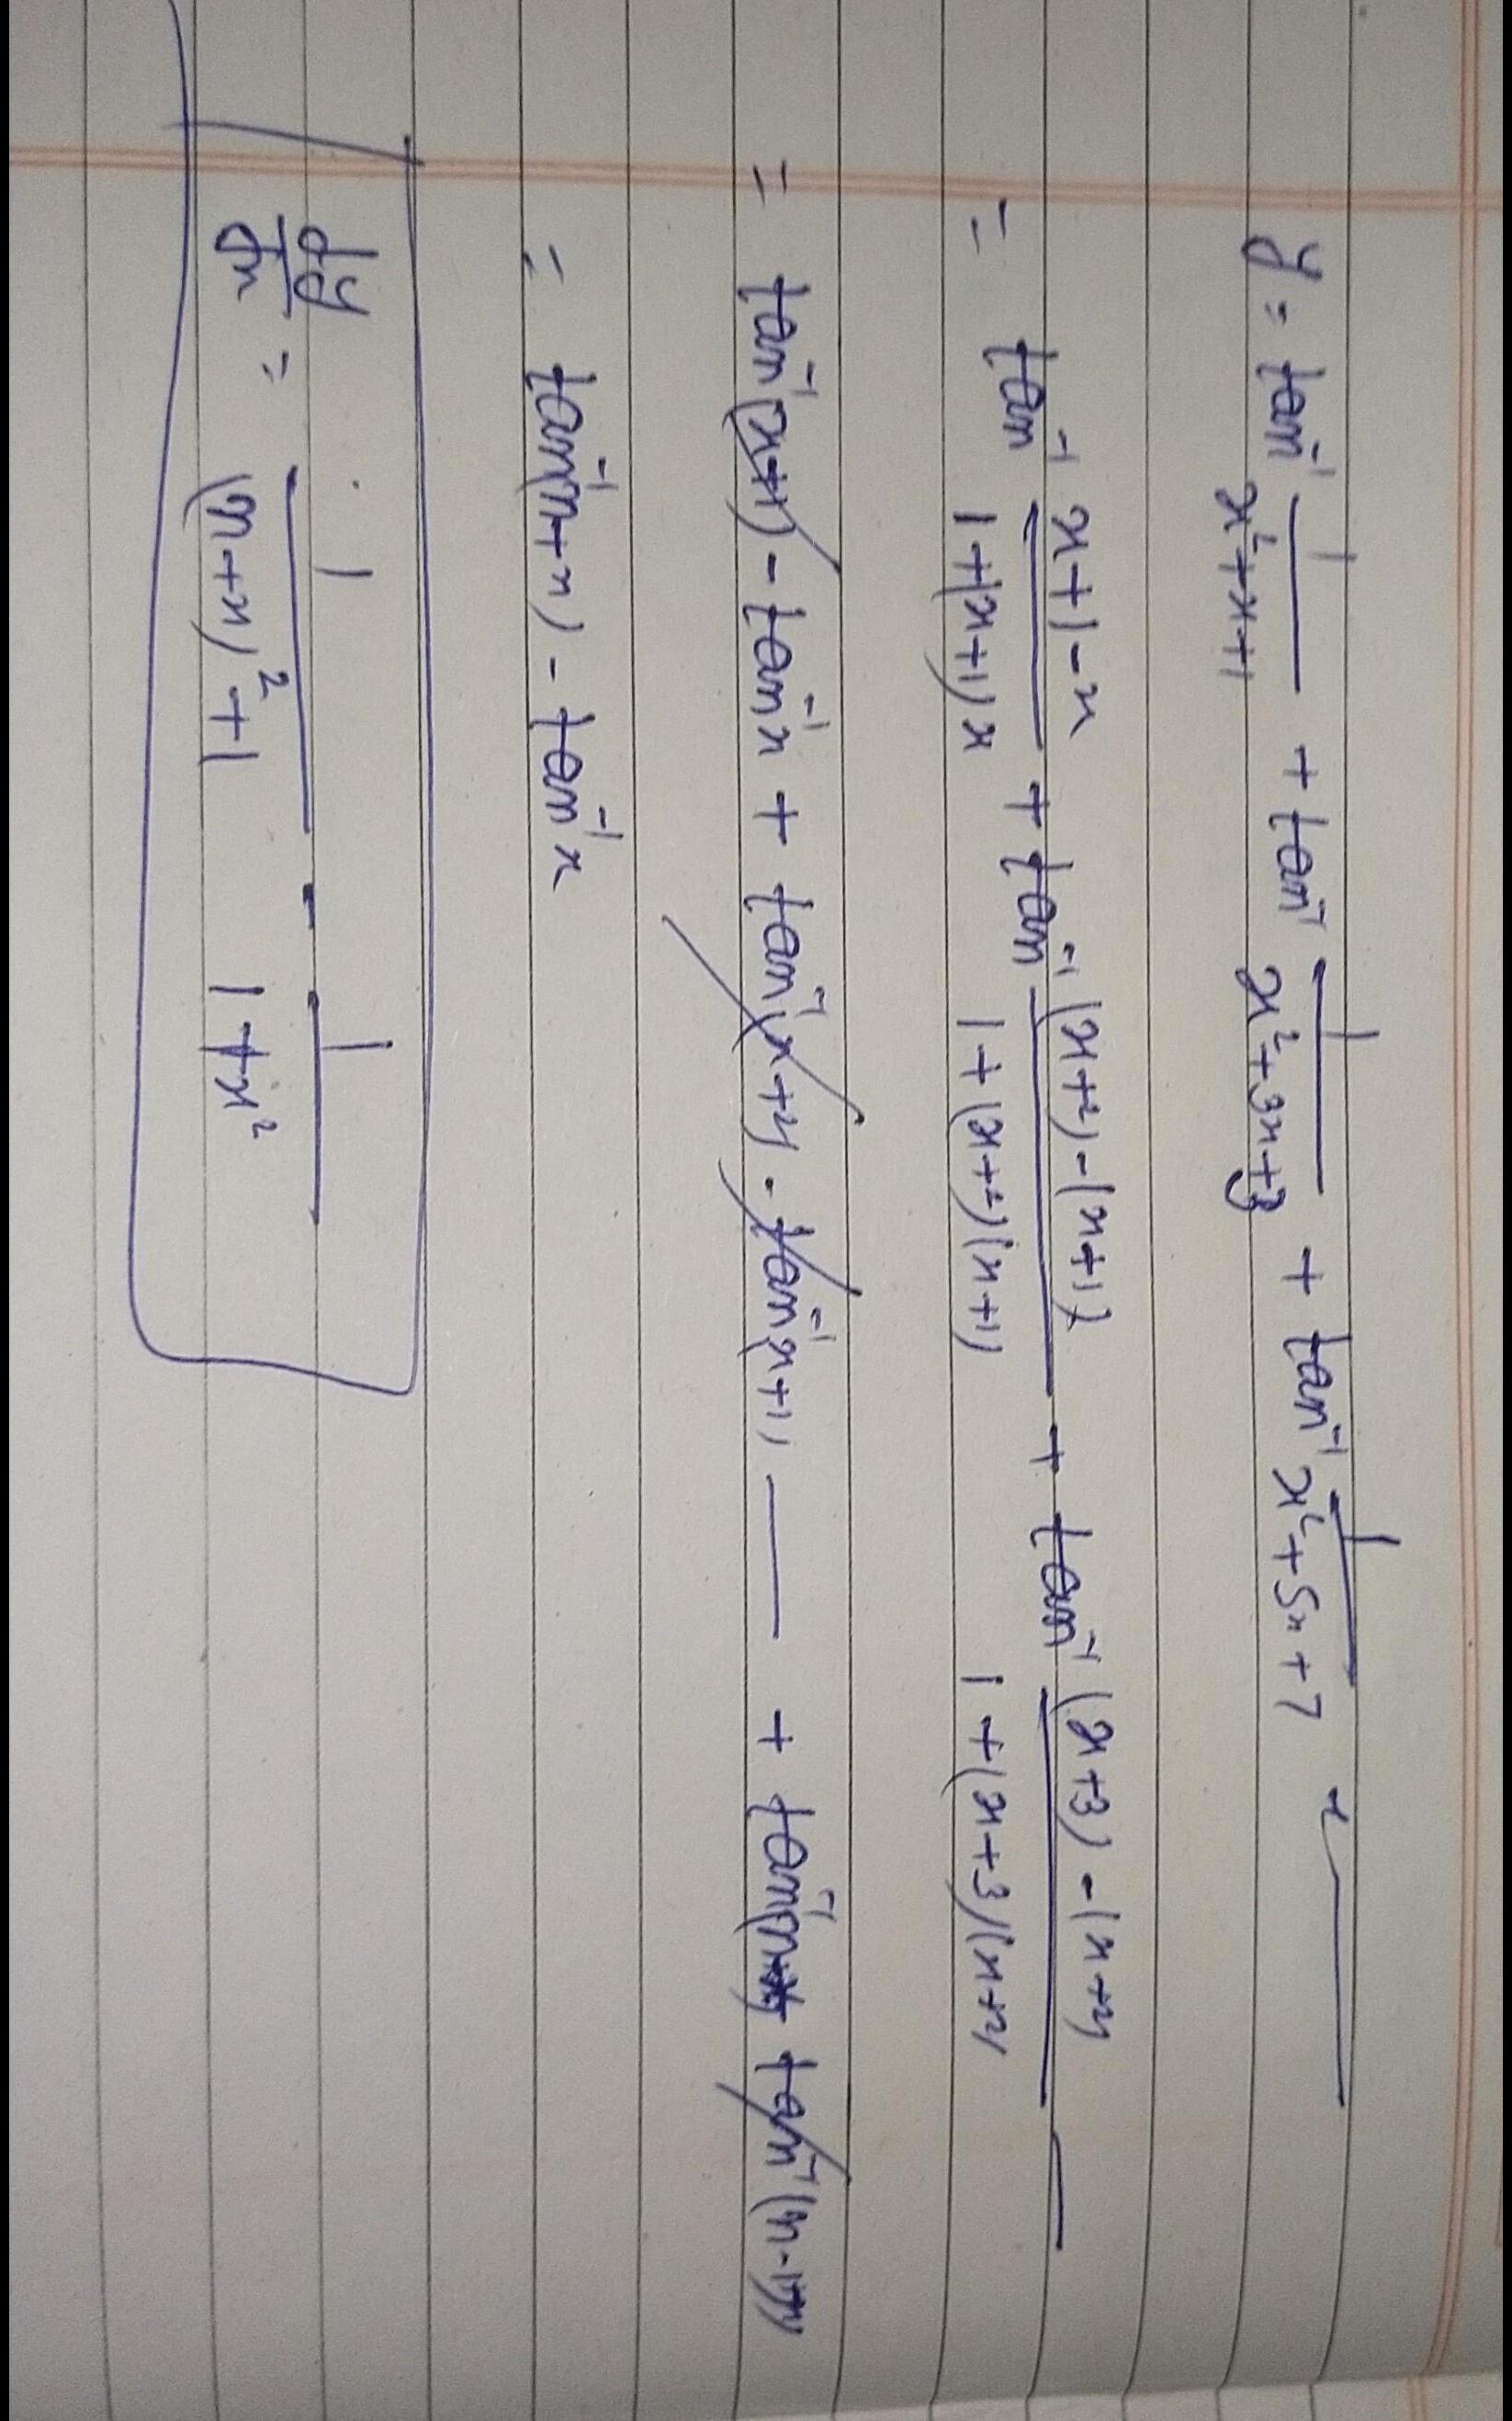 y = tan⁻¹ 1/(x²+x+1) + tan⁻¹ 1/(x²+3x+3) + tan⁻¹ 1/(x²+5x+7) + ——
= tan⁻¹ (x+1-x)/(1+(x+1)x) + tan⁻¹ ((x+2)-(x+1))/(1+(x+2)(x+1)) + tan⁻¹ ((x+3)-(x+2))/(1+(x+3)(x+2)) —
= tan⁻¹(x+1) - tan⁻¹x + tan⁻¹(x+2) - tan⁻¹(x+1) —— + tan⁻¹(n+x) tan⁻¹(n-1+x)
= tan⁻¹(n+x) - tan⁻¹x
dy/dx = 1/((n+x)²+1) - 1/(1+x²)